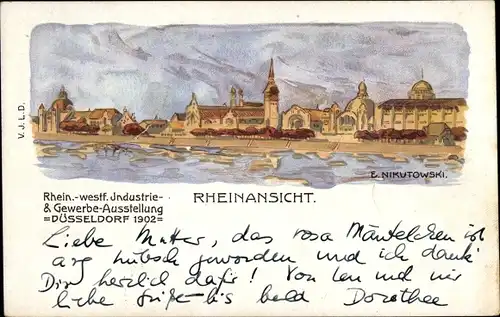 V.J.L.D.
E. NIKUTOWSKI.
Rhein.-westf. Jndustrie-
& Gewerbe-Ausstellung
=DÜSSELDORF 1902=
RHEINANSICHT.
Liebe Mutter, das rosa Mäntelchen ist
arg hübsch geworden und ich dank'
Dir herzlich dafür! Von Len und mir
liebe Grüße - bis bald Dorothee